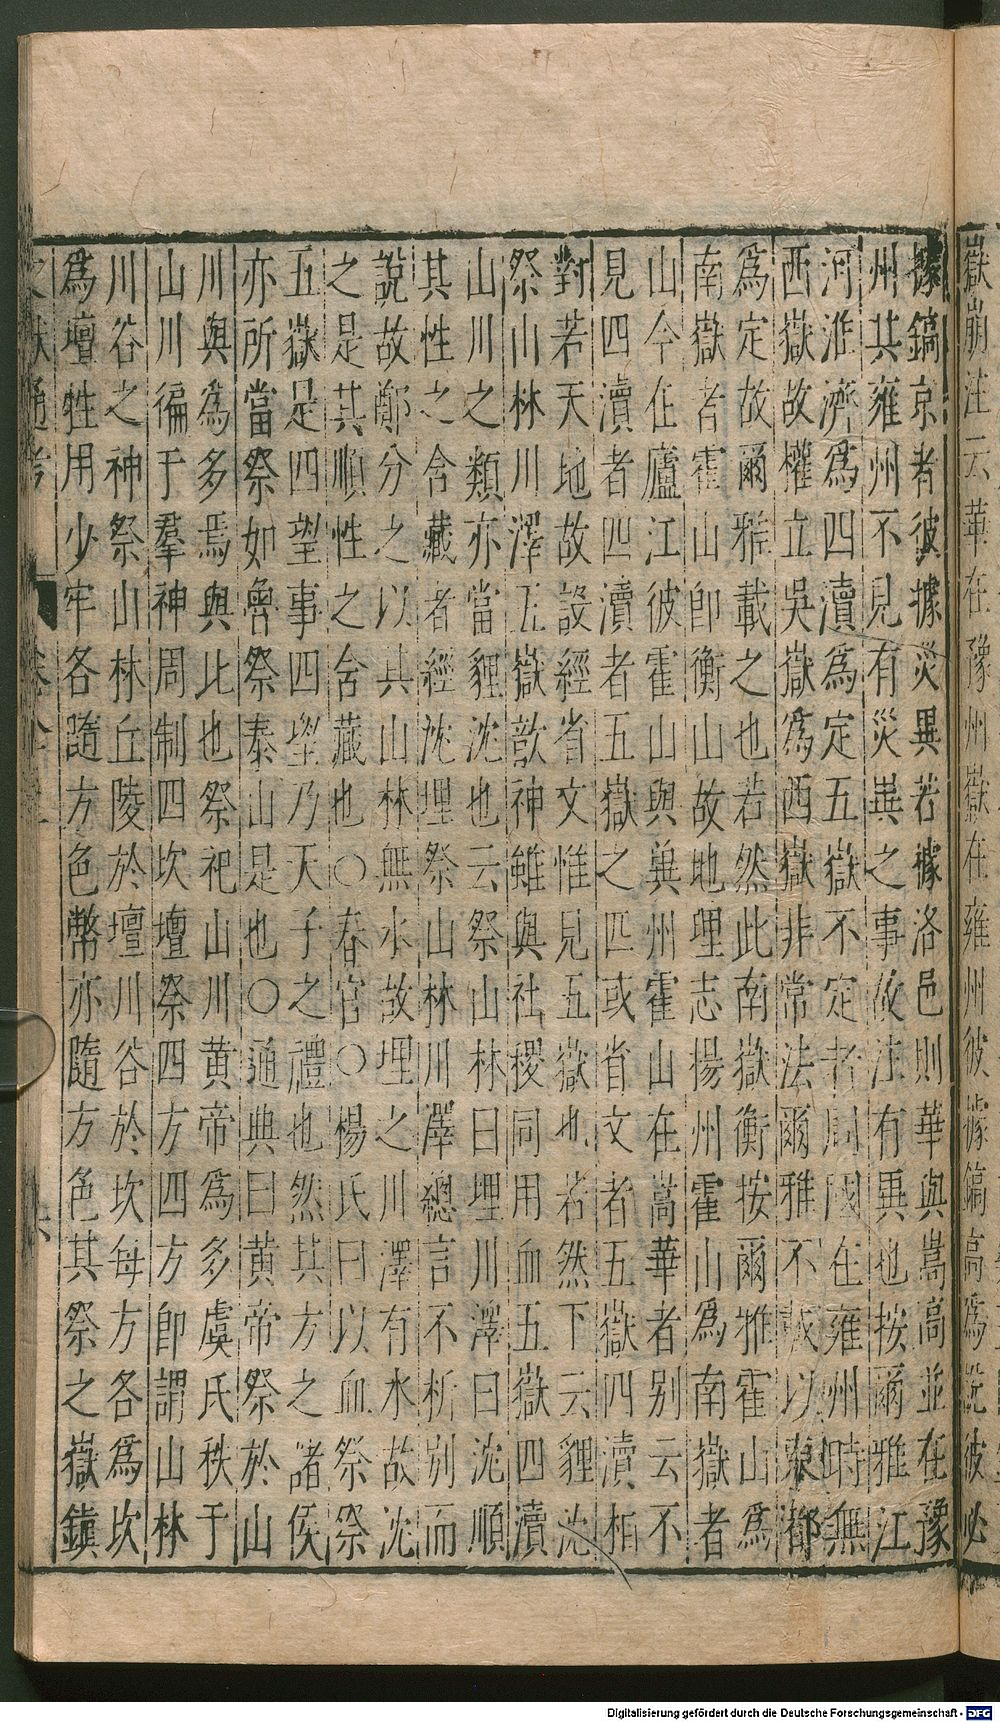 嶽崩注云華在豫州嶽在雍州彼據鎬京為說彼必
據鎬京者彼據災異若據洛邑則華與嵩高並在豫
州其雍州不見有災異之事故注有異也按爾雅江
河淮濟為四瀆為定五嶽不定者周國在雍州時無
西嶽故權立吳嶽為西嶽非常法爾雅不載以東都
為定故爾雅載之也若然此南嶽衡按爾雅霍山為
南嶽者霍山即衡山故地理志揚州霍山為南嶽者
山今在廬江彼霍山與冀州霍山在嵩華者别云不
見四瀆者四瀆者五嶽之匹或省文者五嶽四瀆相
對若天地故設經省文惟見五嶽也若然下云貍沈
祭山林川澤五嶽歆神雖與社稷同用血五嶽四瀆
山川之類亦當貍沈也云祭山林曰埋川澤曰沈順
其性之含藏者經沈埋祭山林川澤總言不析别而
說故鄭分之以其山林無水故埋之川澤有水故沈
之是其順性之含藏也○春官○楊氏曰以血祭祭
五嶽是四望事四望乃天子之禮也然其方之諸侯
亦所當祭如魯祭泰山是也○通典曰黄帝祭於山
川與為多焉與比也祭祀山川黄帝為多虞氏秩于
山川徧于羣神周制四坎壇祭四方四方即謂山林
川谷之神祭山林丘陵於壇川谷於坎每方各為坎
為壇牲用少牢各隨方色幣亦隨方色其祭之嶽鎮
Digitalisierung gefördert durch die Deutsche Forschungsgemeinschaft - DFG